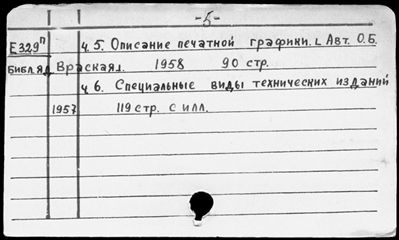 -5-
Е329п ч. 5. Описание печатной графики. ∟ Авт. О.Б.
БИБЛ.ЯД Враская⅃. 1958 90 стр.
ч 6. Специальные виды технических изданий
1957 119 стр. с илл.